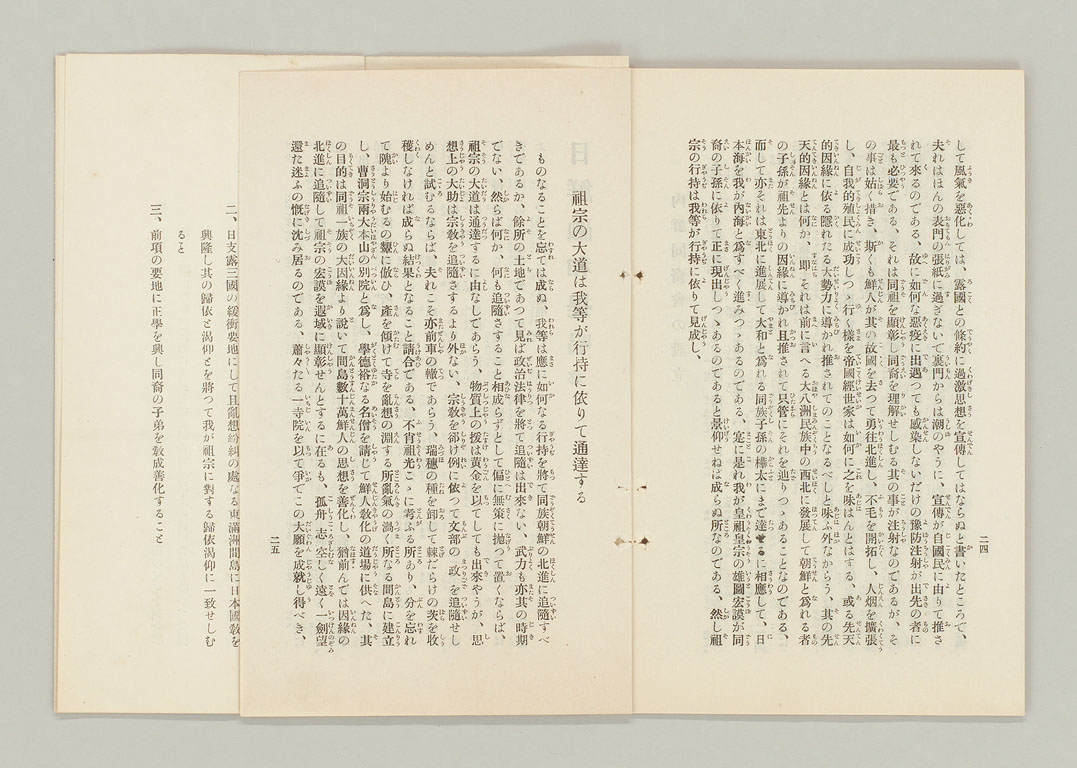 して風氣を惡化しては、露國との條約に過激思想を宣傳してはならぬと書いたところで、
夫れはほんの表門の張紙に過ぎないで裏門からは潮のやうに、宣傳が自國民に由りて推さ
れて來るのである、故に如何な惡疫に出遇つても感染しないだけの豫防注射が出先の者に
最も必要である、それは同祖を顯彰し同裔を理解せしむる其の事が注射なのであるが、そ
の事は姑く措き、斯くも鮮人が其の故國を去つて勇往北進し、不毛を開拓し、人烟を擴張
し、自我的殖民に成功しつゝ行く樣を帝國經世家は如何に之を味はんとはする、或る先天
的因緣に依る隱れたる大勢力に導かれ推されてのことなるべしと味ふ外なからう、其の先
天的因緣とは何か、卽ちそれは前に言へる大八洲民族中の西北に發展して朝鮮と爲れる者
の子孫が祖先よりの因緣に導かれ且推されて只管にそれを辿りつゝあることなのである、
而して亦それは東北に進展して大和と爲れる同族子孫の樺太にまで達するに相應して、日
本海を我が內海と爲すべく進みつゝあるのである、寔に是れ我が皇祖皇宗の雄圖宏謨が同
裔の子孫に依りて正に現出しつゝあるのであると景仰せねば成らぬ所なのである、然し祖
宗の行持は我等が行持に依りて見成し、
二四
祖宗の大道は我等が行持に依りて通達する
ものなることを忘ては成ぬ、我等は應に如何なる行持を將て同族朝鮮の北進に追隨すべ
きであるか、餘所の土地であつて見ば政治法律を將て追隨は出來ない、武力も亦其の時期
でない、然らば何か、何も追隨させること相成らずとして偏に無策に抛つて置くならば、
祖宗の大道は通達するに由なしであらう、物質上の援は黃金を以てしても出來やうが、思
想上の大助は宗敎を追隨さするより外ない、宗敎を郤け例に依つて文部の政を追隨せし
めんと試むるならば、夫れこそ亦前車の轍であらう、瑞穗の種を卸して棘だらけの茨を收
穫しなければ成らぬ結果となること請合である、不肖祖光こゝに考ふる所あり、分を忘れ
て隗より始むるの顰に倣ひ、產を傾けて寺を亂想の淵する所亂氣の渦く所なる間島に建立
し、曹洞宗兩大本山の別院と爲し、學德裕なる名僧を請じて鮮人敎化の道場に供へた、其
の目的は同祖一族の大因緣より說いて間島數十萬鮮人の思想を善化し、猶前んでは因緣の
北進に追隨して祖宗の宏謨を遐域に顯彰せんとするに在るも、孤舟志空しく遠く一劍望
還た迷ふの慨に沈み居るのである、蕭々たる一寺院を以て爭でこの大願を成就し得べき、
二五
二、日支露三國の緩衝要地にして且亂想紛糾の處なる東滿洲間島に日本國敎を
興隆し其の歸依と渴仰とを將つて我が祖宗に對する歸依渴仰に一致せしむ
ること
三、前項の要地に正學を興し同裔の子弟を敎成善化すること